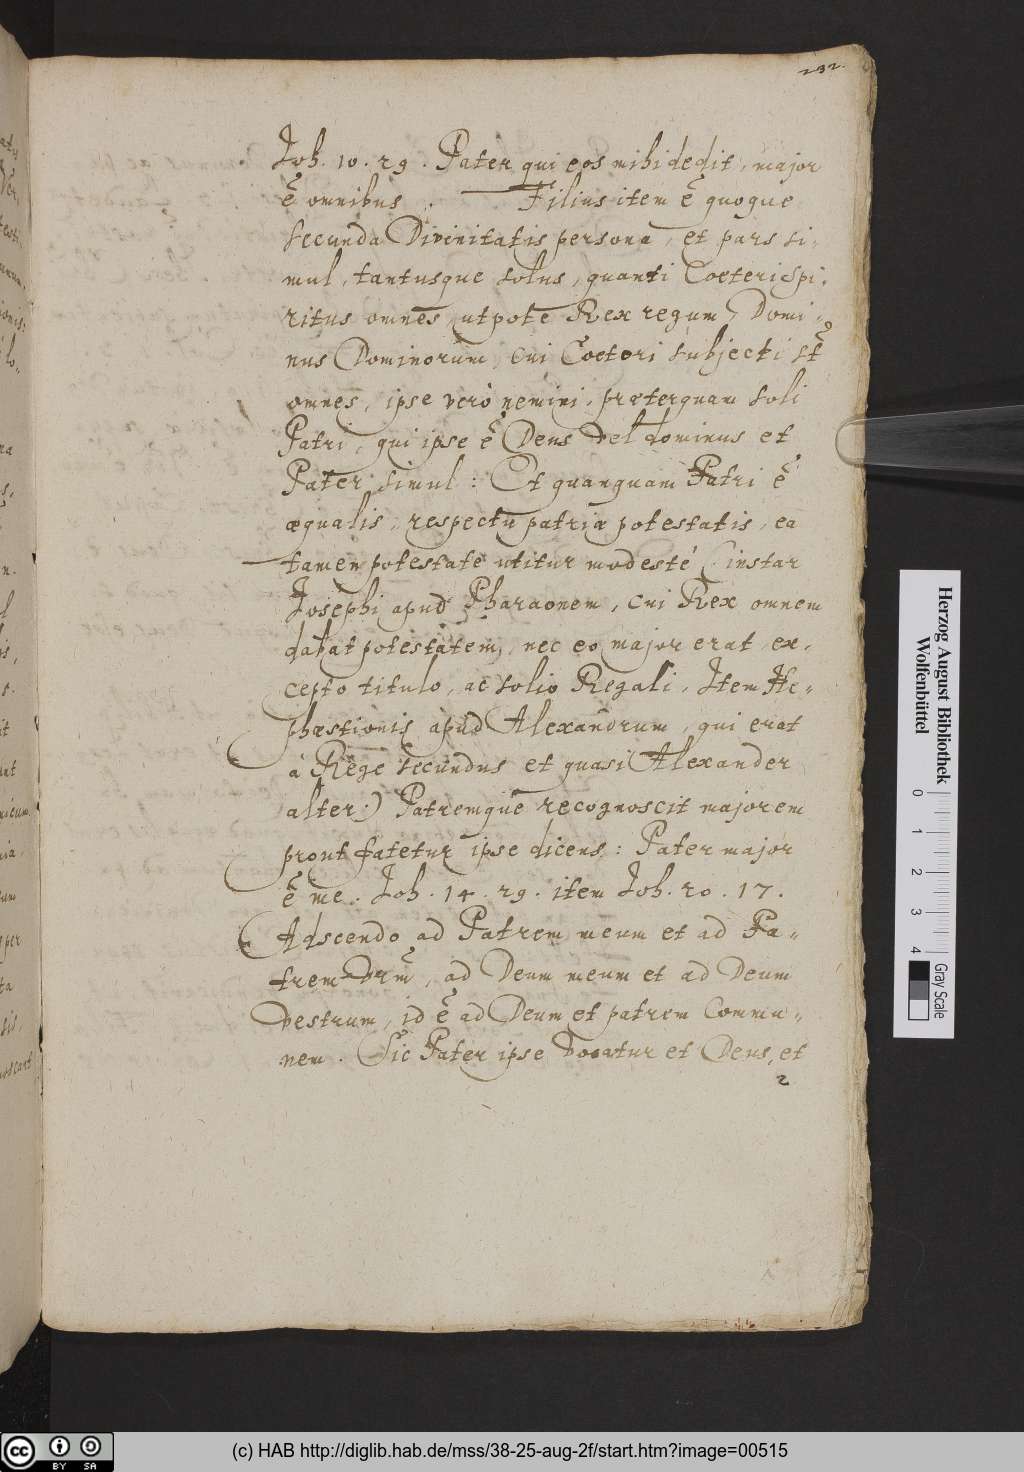 232.
Joh. 10. 29. Pater qui eos mihi dedit, major
ē omnibus. Filius item ē quoque
secunda Divinitatis persona, et pars si-
mul, tantusque solus, quanti Coeteri Spi-
ritus omnes, utpote Rex regum, Domi-
nus Dominorum, cui Coeteri subjecti st̄
omnes, ipse verò nemini, præterquam soli
Patri, qui ipse ē Deus vel dominus et
Pater simul: Et quanquam Patri ē
æqualis, respectu patriæ potestatis, ea
tamen potestate utitur modestè (instar
Josephi apud Pharaonem, cui Rex omnem
dabat potestatem, nec eo major erat, ex-
cepto titulo, ac solio Regali, Item He-
phæstionis apud Alexandrum, qui erat
à Rege secundus et quasi Alexander
alter:) Patremque recognoscit majorem
prout fatetur ipse dicens: Pater major
ē me. Joh. 14. 29. item Joh. 20. 17.
Adscendo ad Patrem meum et ad Pa-
trem vrm̄, ad Deum meum et ad Deum
vestrum, id ē ad Deum et patrem Commu-
nem. Sic Pater ipse vocatur et Deus, et
2
Herzog August Bibliothek
Wolfenbüttel
0 1 2 3 4
Gray Scale
cc BY SA
(c) HAB http://diglib.hab.de/mss/38-25-aug-2f/start.htm?image=00515